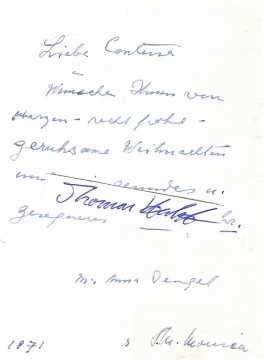 Liebe Contessa
Wünsche Ihnen von
Herzen - recht frohe -
geruhsame Weihnachten
und gesundes u.
Thomas
gesegnetes
M. Anna Dengel
1971